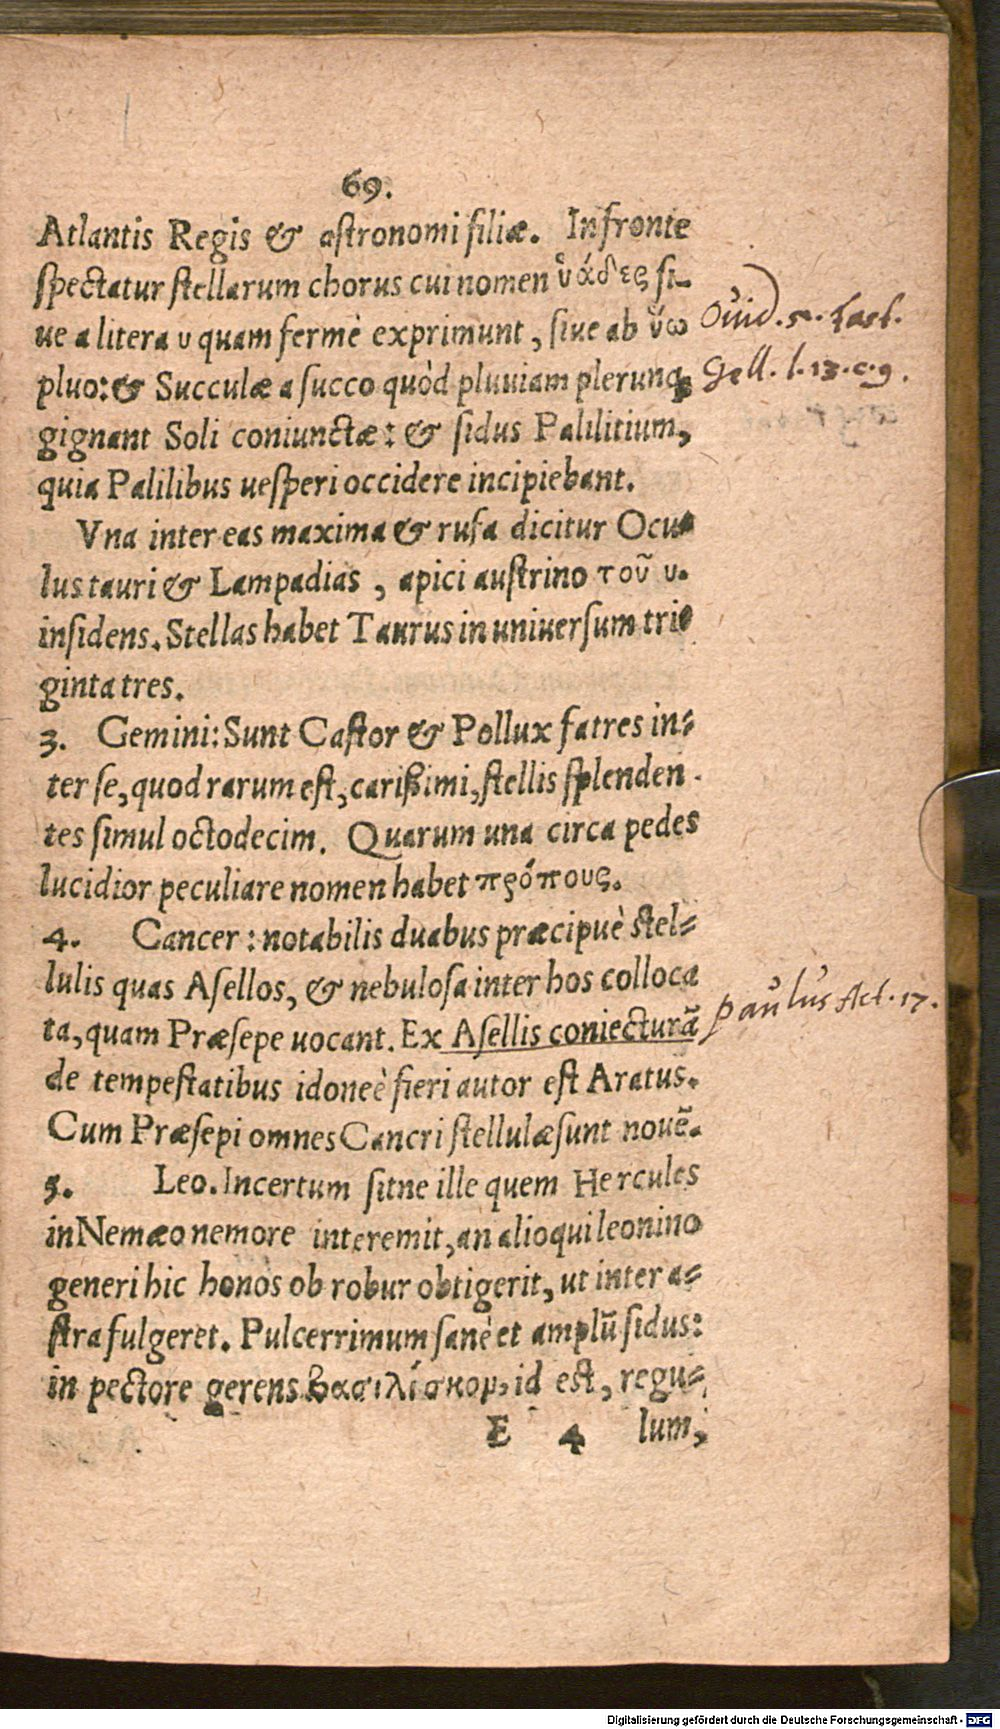 69.
Atlantis Regis & astronomi filiæ. In fronte
ſpectatur ſtellarum chorus cui nomen ὑάδες ſi-
ue a litera υ quam fermè exprimunt, ſiue ab ὕω
pluo: & Succulæ a ſucco quòd pluuiam plerunq;
gignant Soli coniunctæ: & ſidus Palilitium,
quia Palilibus ueſperi occidere incipiebant.
Vna inter eas maxima & rufa dicitur Ocu-
lus tauri & Lampadias, apici auſtrino τοῦ υ.
inſidens. Stellas habet Taurus in uniuerſum tri-
ginta tres.
3. Gemini: Sunt Caſtor & Pollux fatres in-
ter ſe, quod rarum eſt, carißimi, ſtellis ſplenden-
tes ſimul octodecim. Quarum una circa pedes
lucidior peculiare nomen habet πρόπους.
4. Cancer: notabilis duabus præcipuè ſtel-
lulis quas Aſellos, & nebuloſa inter hos colloca
ta, quam Præſepe uocant. Ex Aſellis coniecturã
de tempeſtatibus idoneè fieri autor eſt Aratus.
Cum Præſepi omnes Cancri ſtellulæ ſunt nouẽ.
5. Leo. Incertum ſitne ille quem Hercules
in Nemæo nemore interemit, an alioqui leonino
generi hic honos ob robur obtigerit, ut inter a-
ſtra fulgeret. Pulcerrimum ſanè et amplũ ſidus:
in pectore gerens βασιλίσκον, id eſt, regu-
E 4 lum,
Ouid. 5. fast.
Gell. l. 13. c. 9.
Paulus Act. 17.
Digitalisierung gefördert durch die Deutsche Forschungsgemeinschaft - DFG